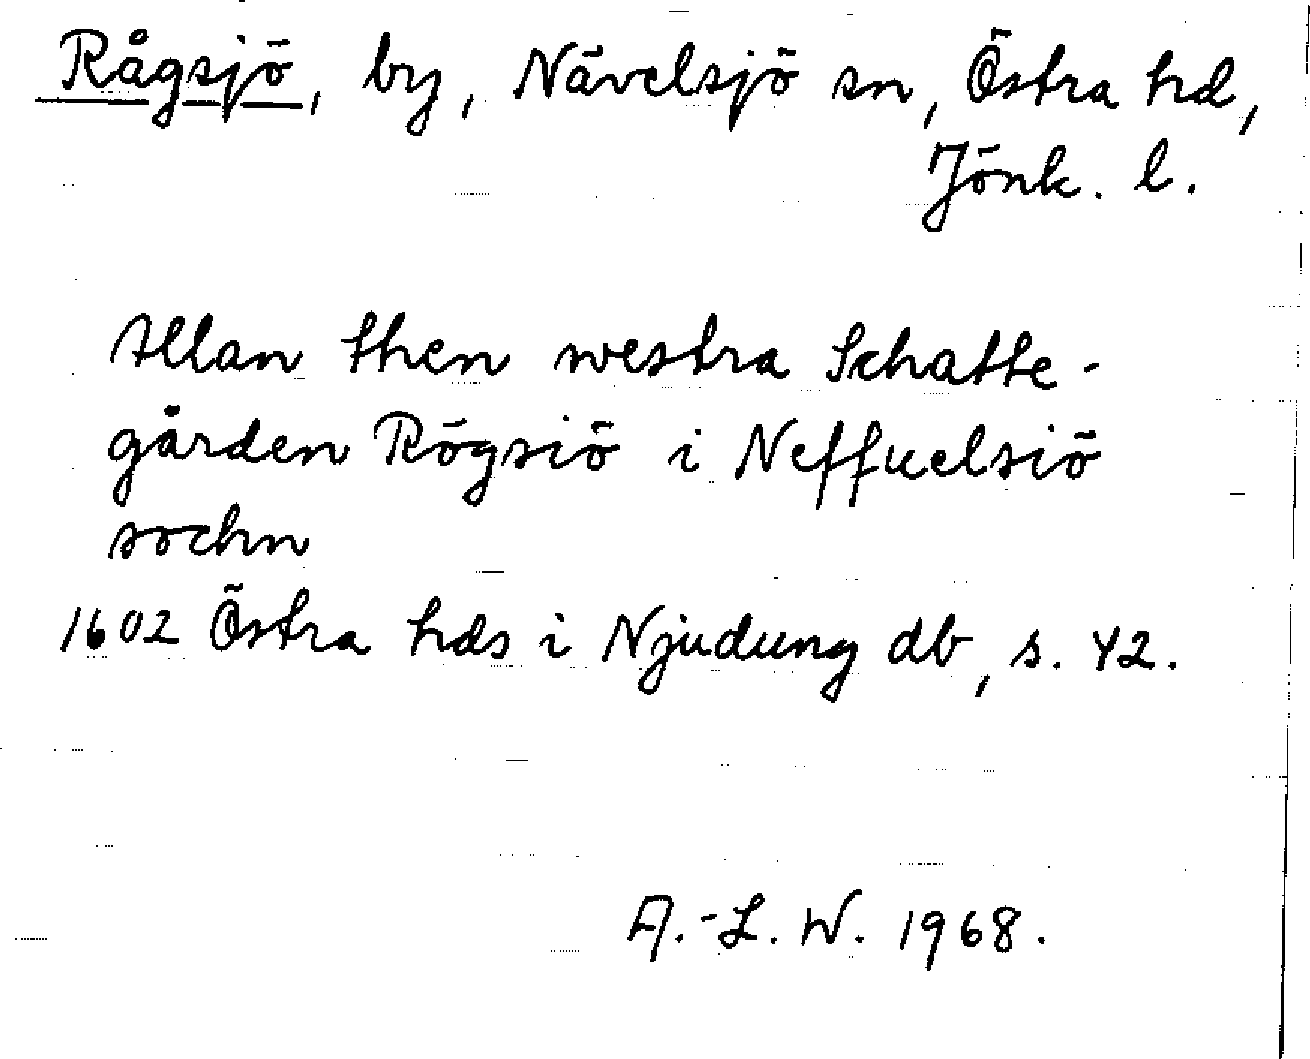 Rågsjö, by, Nävelsjö sn, Östra hd,
Jönk. l.
Allan then westra Schatte-
gården Rögsiö i Neffuelsiö
sochn
1602 Östra hds i Njudung db, s. 42.
A.-L. W. 1968.